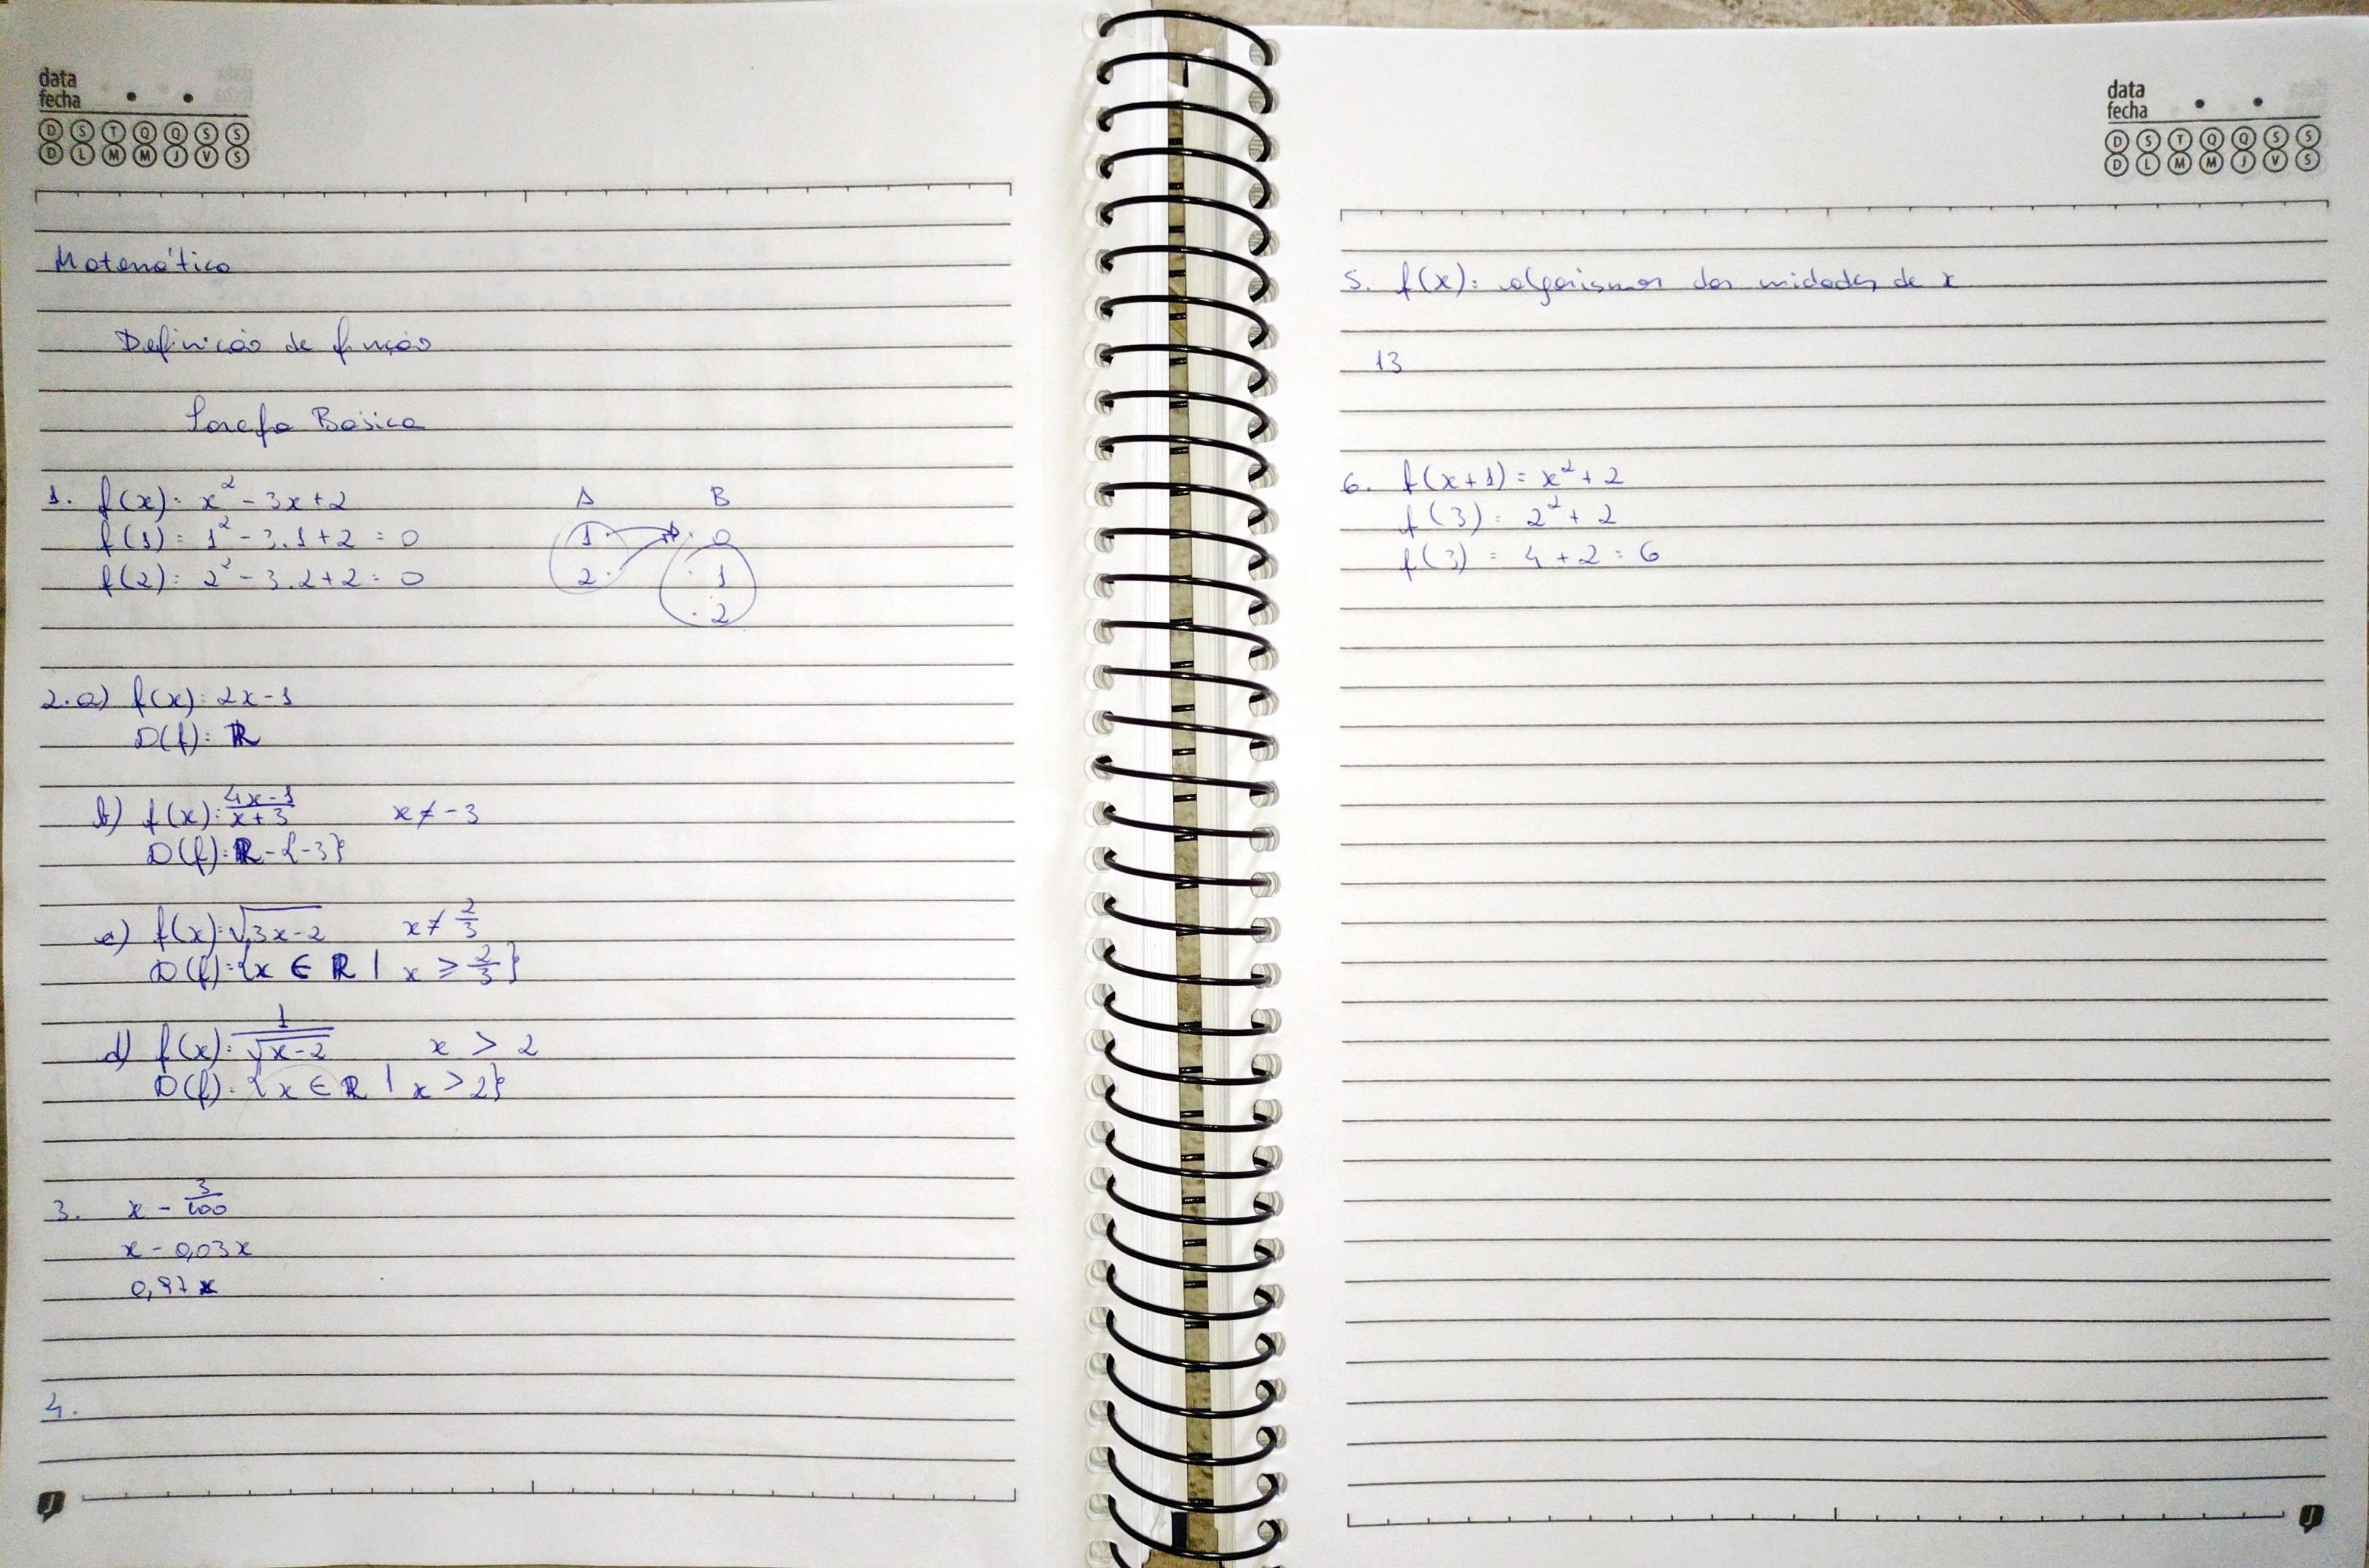 data
fecha
D S T Q Q S S
D L M M J V S
Matemática
Definição de função
Tarefa Básica
1. f(x) = x² - 3x + 2
f(1) = 1² - 3.1 + 2 = 0
f(2) = 2² - 3.2 + 2 = 0
A B
1 0
2 1
2
2. a) f(x) = 2x - 1
D(f) = ℝ
b) f(x) = (4x - 1)/(x + 3) x ≠ -3
D(f) = ℝ - {-3}
c) f(x) = √(3x - 2) x ≠ 2/3
D(f) = {x ∈ ℝ | x ≥ 2/3}
d) f(x) = 1/√(x - 2) x > 2
D(f) = {x ∈ ℝ | x > 2}
3. x - 3/100
x - 0,03x
0,97x
4.
data
fecha
D S T Q Q S S
D L M M J V S
5. f(x) = algarismos das unidades de x
13
6. f(x+1) = x² + 2
f(3) = 2² + 2
f(3) = 4 + 2 = 6